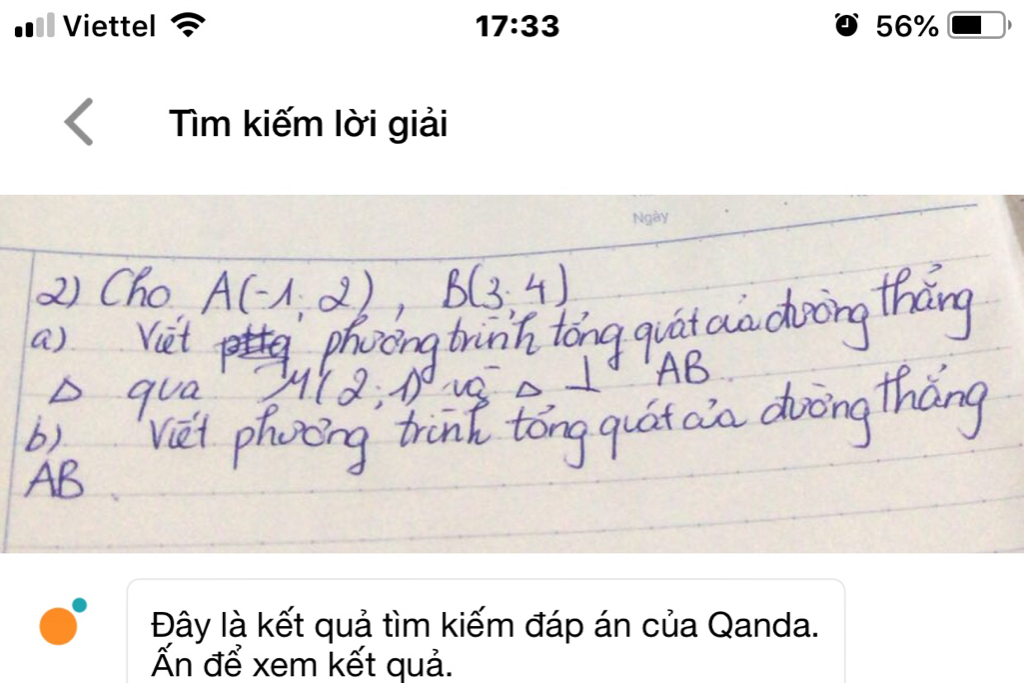 Viettel 17:33 56%
Tìm kiếm lời giải
Ngày
2) Cho A(-1; 2), B(3; 4)
a) Viết pttq phương trình tổng quát của đường thẳng
Δ qua M(2; 1) và Δ ⊥ AB
b) Viết phương trình tổng quát của đường thẳng
AB.
Đây là kết quả tìm kiếm đáp án của Qanda.
Ấn để xem kết quả.